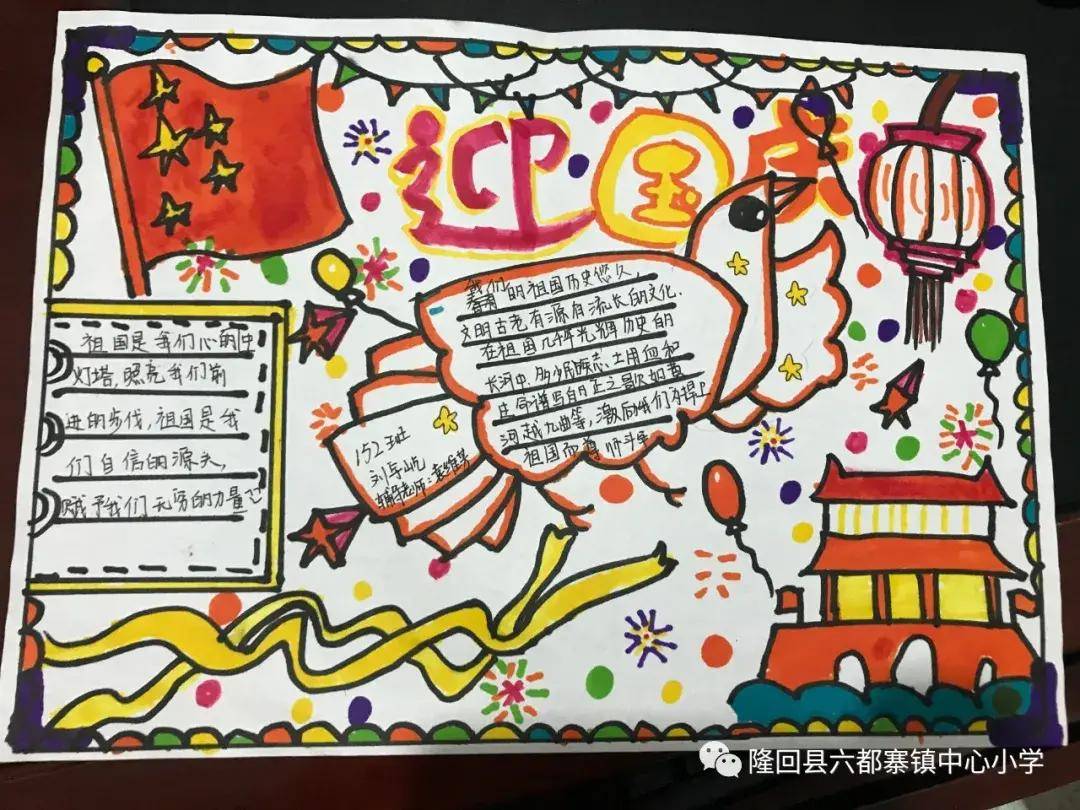 迎国庆
我们的祖国历史悠久,
文明古老有源自流长的文化.
在祖国几千年光辉历史的
长河中,多少民族志士用血和
生命谱写的正之歌如黄
河越九曲等,激向我们为捍
祖国而尊
祖国是我们心的中
灯塔,照亮我们前
进的步伐,祖国是我
们自信的源头,
赋予我们无穷的力量
152班
刘宇屹
辅导老师:袁维芳
隆回县六都寨镇中心小学